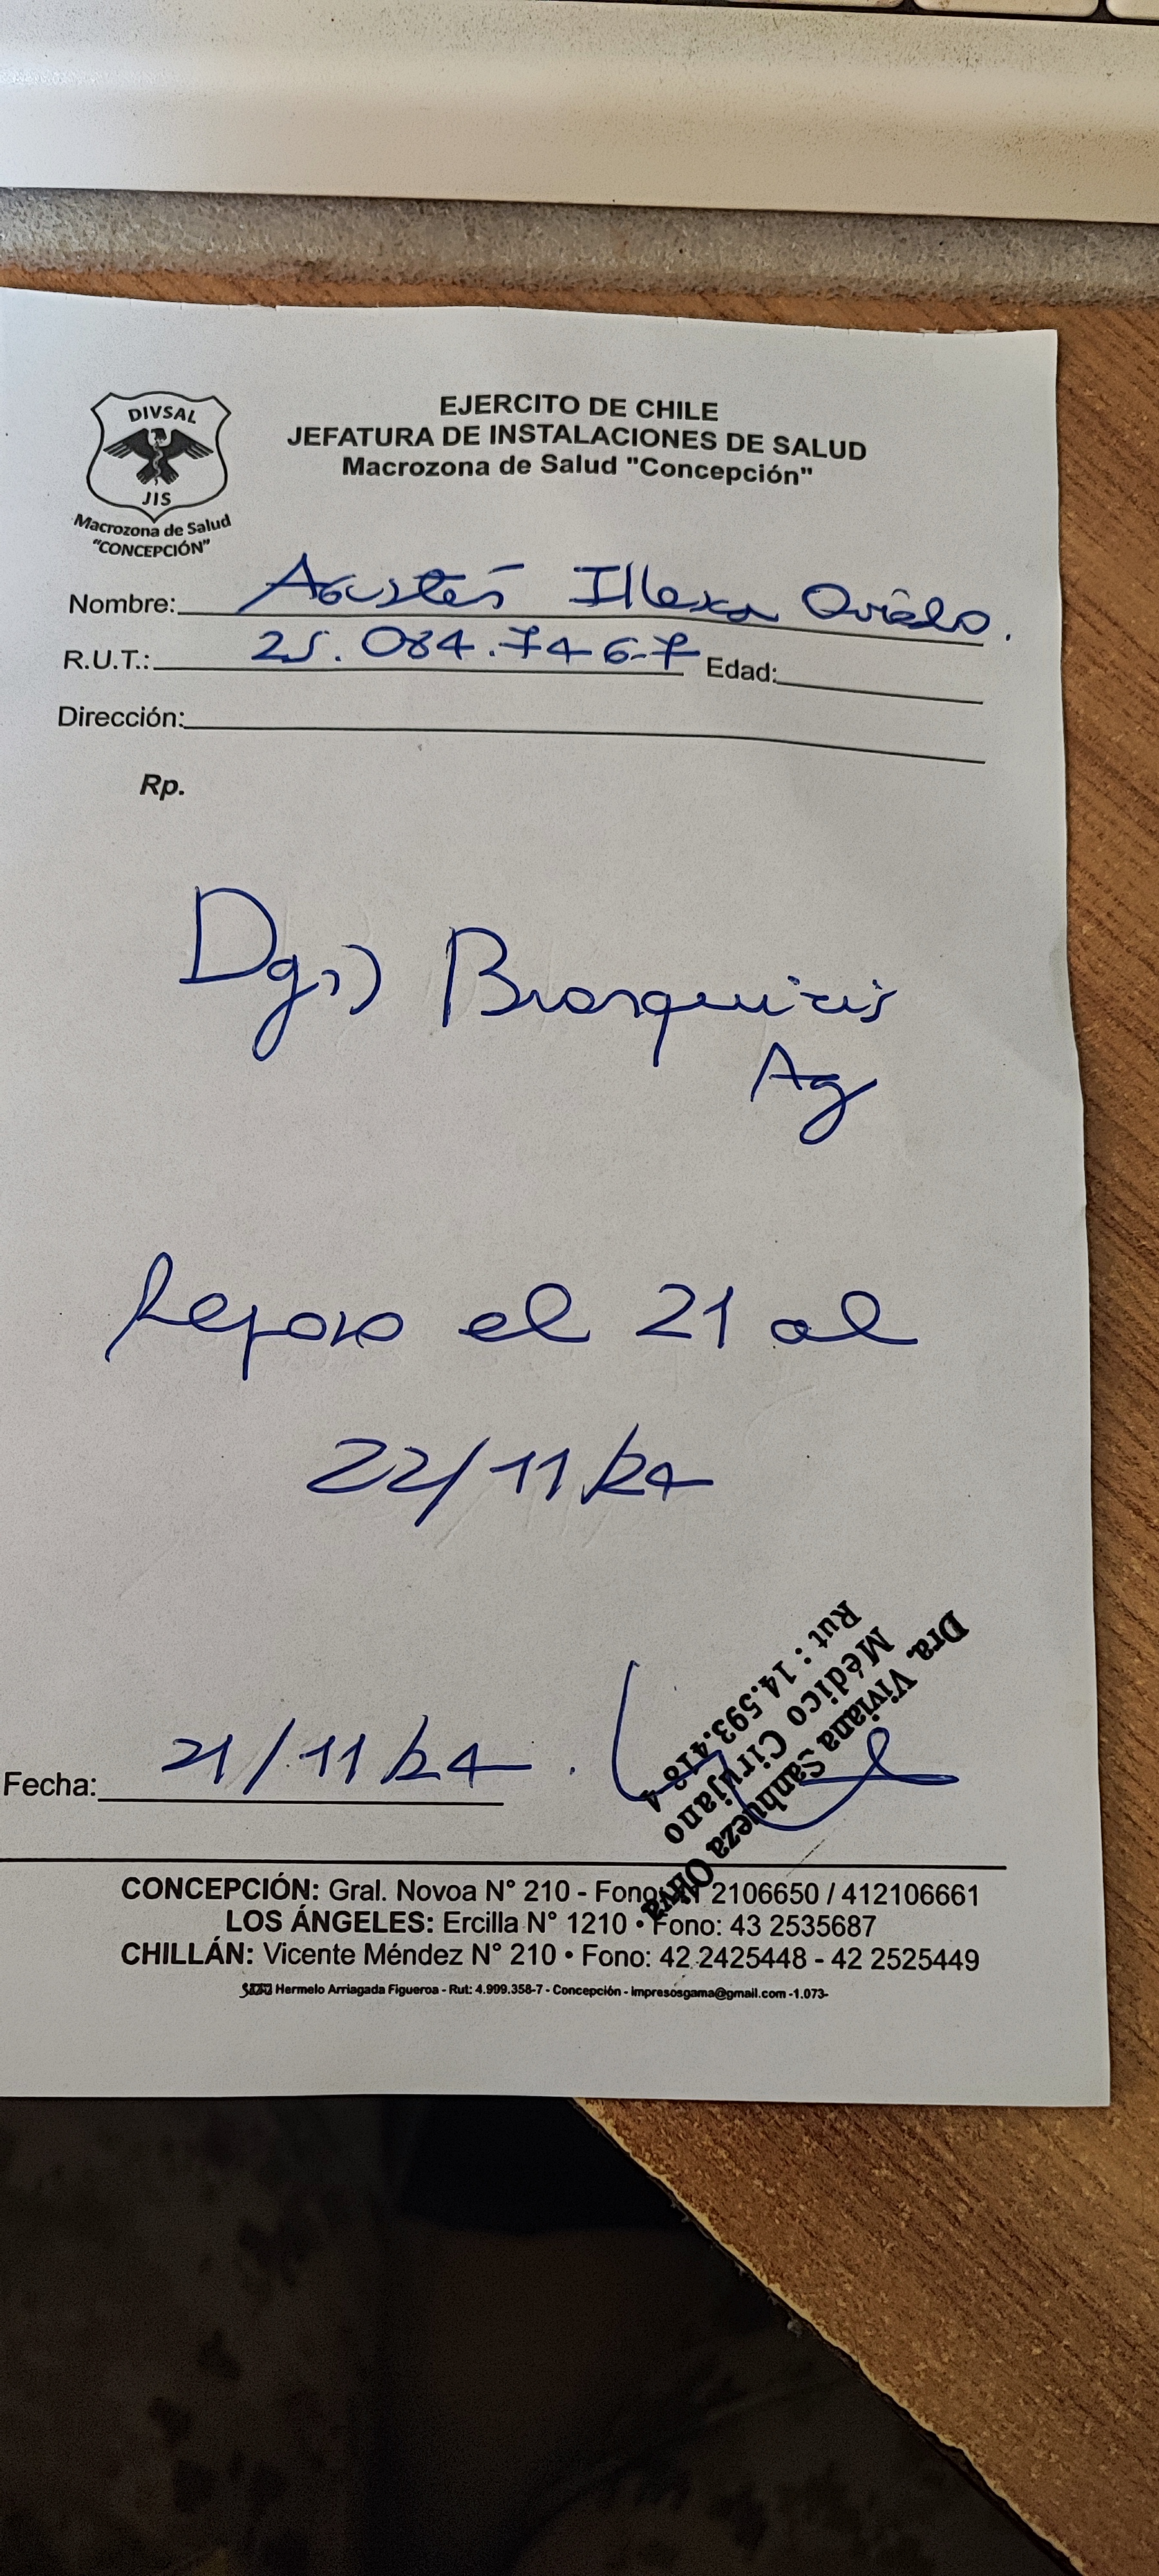 DIVSAL
JIS
Macrozona de Salud
"CONCEPCIÓN"
EJERCITO DE CHILE
JEFATURA DE INSTALACIONES DE SALUD
Macrozona de Salud "Concepción"
Nombre: Agustín Illexa Oviedo.
R.U.T.: 25.084.746-7 Edad:
Dirección:
Rp.
Dg:) Bronquitis
Ag
Reposo el 21 al
22/11/24
Fecha: 21/11/24.
Dra. Viviana Sanhueza Oliva
Médico Cirujano
Rut : 14.593.418-4
CONCEPCIÓN: Gral. Novoa N° 210 - Fono: 2106650 / 412106661
LOS ÁNGELES: Ercilla N° 1210 • Fono: 43 2535687
CHILLÁN: Vicente Méndez N° 210 • Fono: 42 2425448 - 42 2525449
Hermelo Arriagada Figueroa - Rut: 4.999.358-7 - Concepción - impresosgama@gmail.com -1.073-